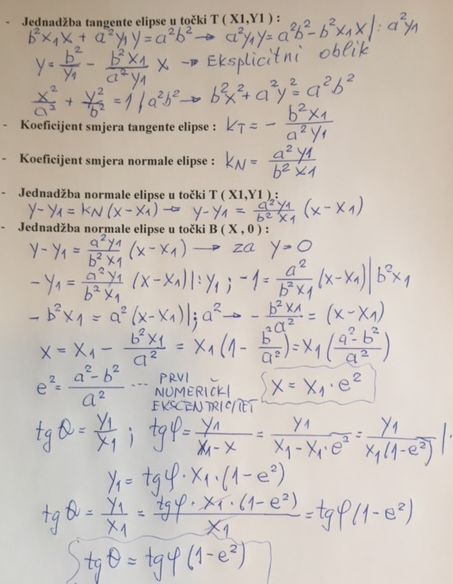 - Jednadžba tangente elipse u točki T ( X1,Y1 ) :
b²x1x + a²y1y = a²b² → a²y1y = a²b² - b²x1x |: a²y1
y = b²/y1 - b²x1/a²y1 x → Eksplicitni oblik
x²/a² + y²/b² = 1 | a²b² → b²x² + a²y² = a²b²
- Koeficijent smjera tangente elipse : kT = - b²x1/a²y1
- Koeficijent smjera normale elipse : kN = a²y1/b²x1
- Jednadžba normale elipse u točki T ( X1,Y1 ) :
y-y1 = kN (x-x1) → y-y1 = a²y1/b²x1 (x-x1)
- Jednadžba normale elipse u točki B ( X , 0 ) :
y-y1 = a²y1/b²x1 (x-x1) → za y=0
-y1 = a²y1/b²x1 (x-x1) |: y1 ; -1 = a²/b²x1 (x-x1) | b²x1
- b²x1 = a² (x-x1) |: a² → - b²x1/a² = (x-x1)
x = x1 - b²x1/a² = x1 (1 - b²/a²) = x1 (a²-b²/a²)
e² = a²-b²/a² ... PRVI NUMERIČKI EKSCENTRICITET x = x1·e²
tgθ = y1/x1 ; tgφ = y1/x1-x = y1/x1-x1·e² = y1/x1(1-e²) |·
y1 = tgφ·x1·(1-e²)
tgθ = y1/x1 = tgφ·x1·(1-e²)/x1 = tgφ(1-e²)
tgθ = tgφ(1-e²)